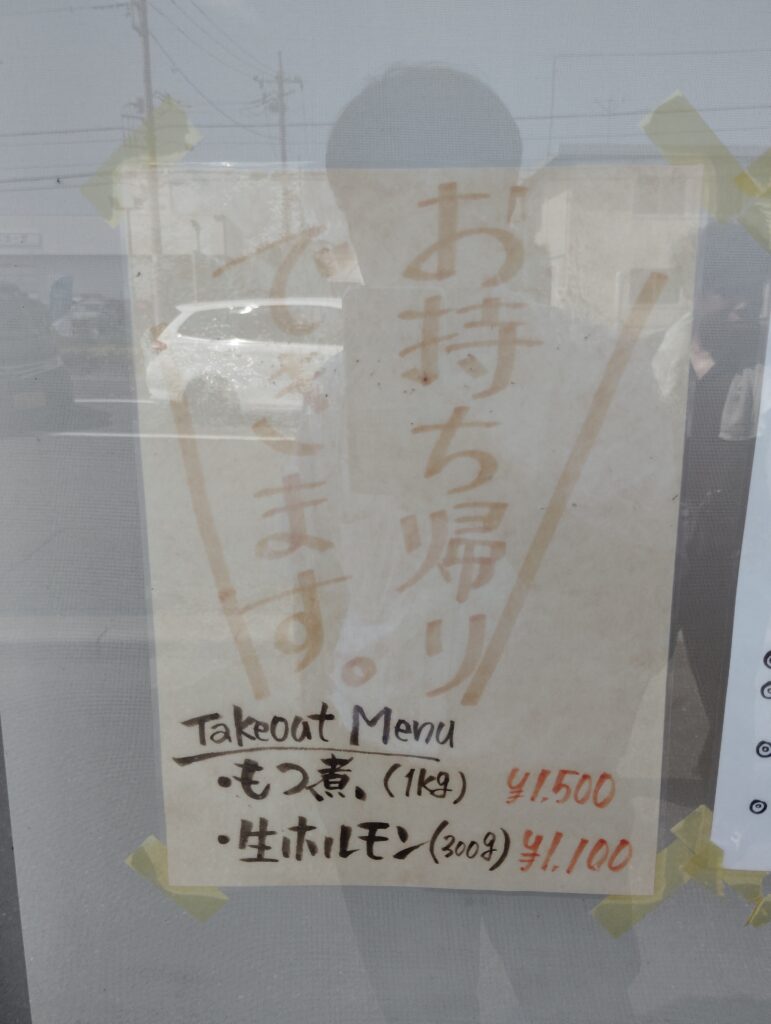 お持ち帰り
できます。
Takeout Menu
・もつ煮、(1kg) ¥1,500
・生ホルモン(300g) ¥1,100